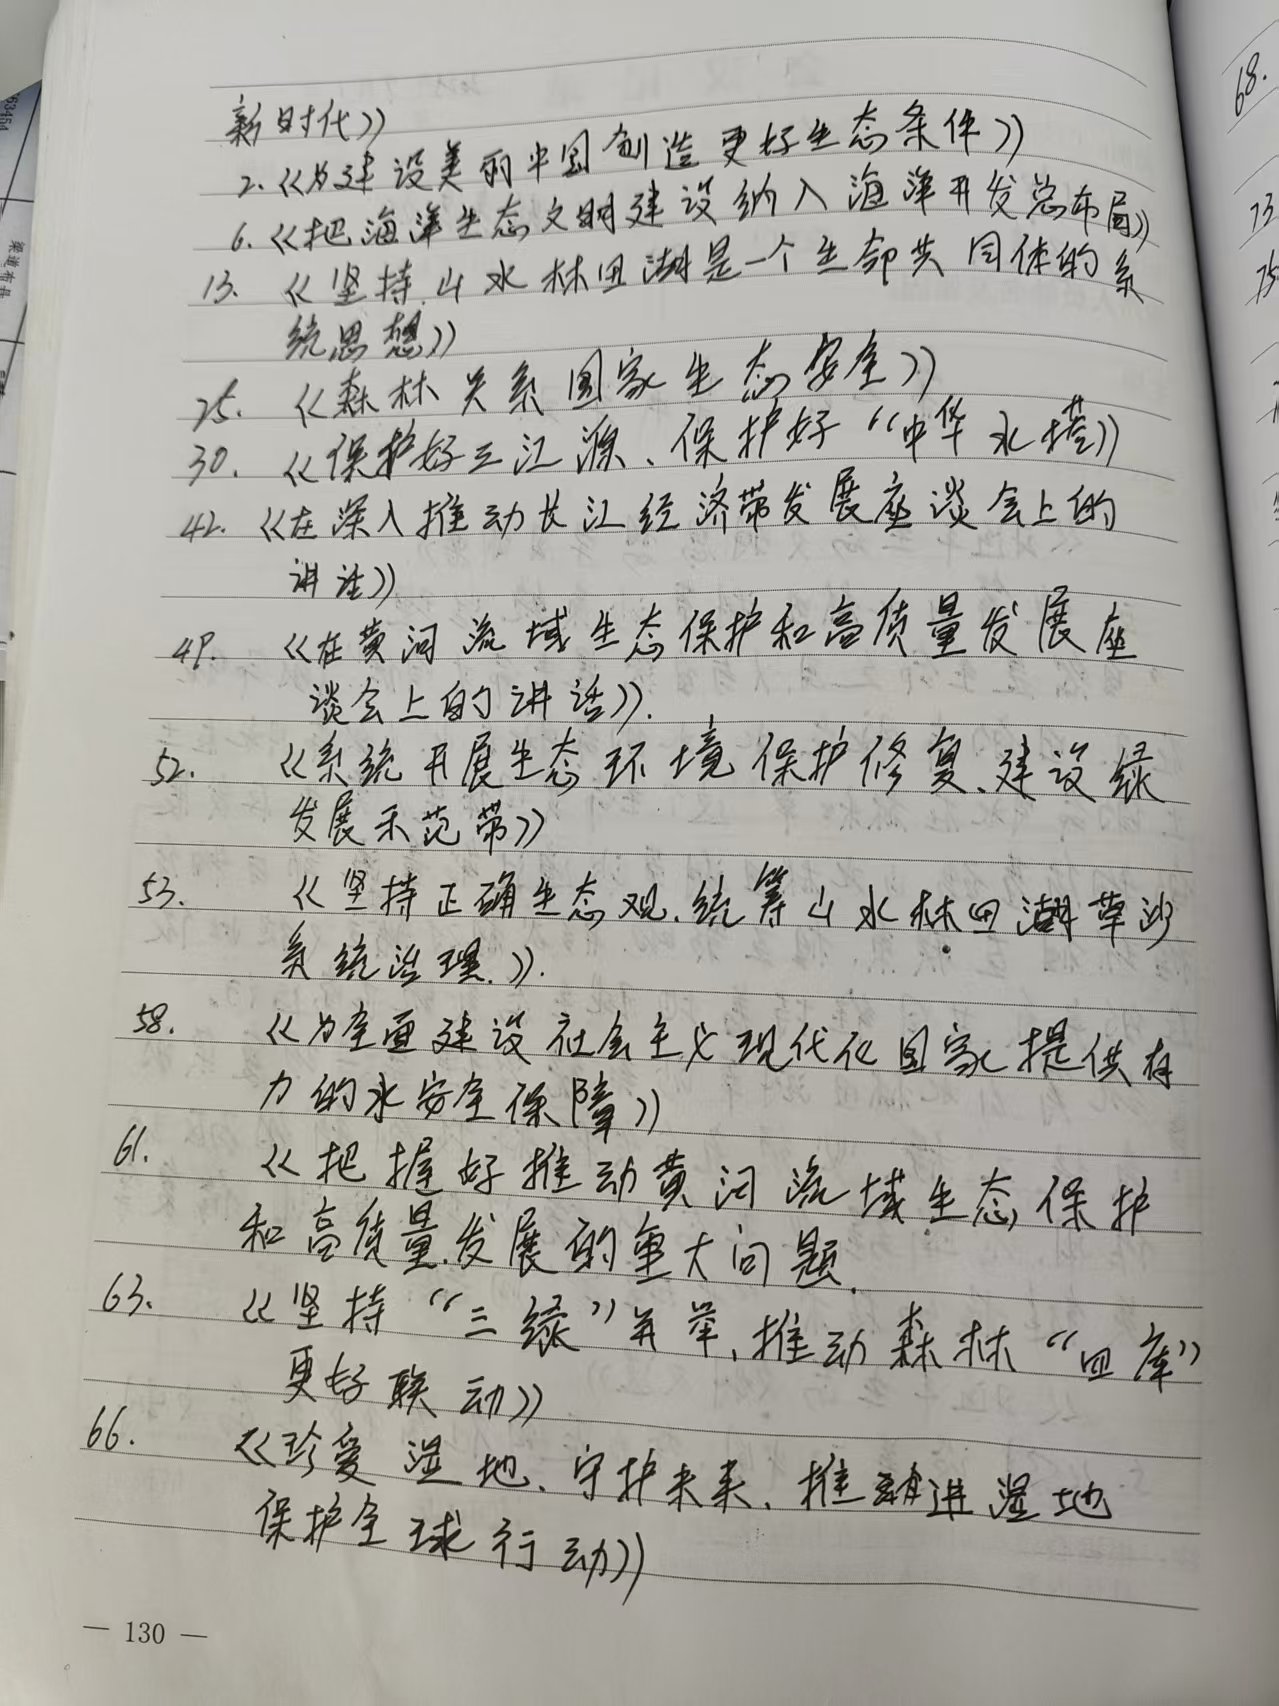 新时代》
2.《为建设美丽中国创造更好生态条件》
6.《把海洋生态文明建设纳入海洋开发总布局》
13.《坚持山水林田湖是一个生命共同体的系
统思想》
25.《森林关系国家生态安全》
30.《保护好三江源、保护好“中华水塔》
42.《在深入推动长江经济带发展座谈会上的
讲话》
49.《在黄河流域生态保护和高质量发展座
谈会上的讲话》.
52.《系统开展生态环境保护修复、建设绿
发展示范带》
53.《坚持正确生态观、统筹山水林田湖草沙
系统治理.》.
58.《为全面建设社会主义现代化国家提供有
力的水安全保障》
61.《把握好推动黄河流域生态保护
和高质量发展的重大问题.
63.《坚持“三绿”并举、推动森林“四库”
更好联动》
66.《珍爱湿地、守护未来、推进湿地
保护全球行动》
— 130 —
68.
73
75